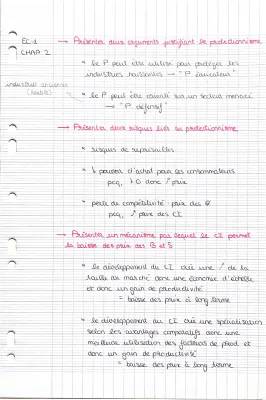 EC 1
CHAP 2
→ Présenter deux arguments justifiant le protectionnisme
• le P peut être utilisé pour protéger les
industries naissantes → "P éducateur"
industries anciennes
• le P peut être orienté sur un secteur menacé
→ "P défensif"
→ Présenter deux risques liés au protectionnisme
• risques de représailles
• ↓ pouvoir d'achat pour les consommateurs
pcq, ↓ O donc ↗ prix
• perte de compétitivité-prix des
pcq, ↗ prix des CI
→ Présenter un mécanisme par lequel le CI permet
la baisse des prix des B et S
• le développement du CI crée une ↗ de la
taille du marché donc une économie d'échelle
et donc un gain de productivité
= baisse des prix à long terme
• le développement du CI crée une spécialisation
selon les avantages comparatifs donc une
meilleure utilisation des facteurs de prod et
donc un gain de productivité
= baisse des prix à long terme